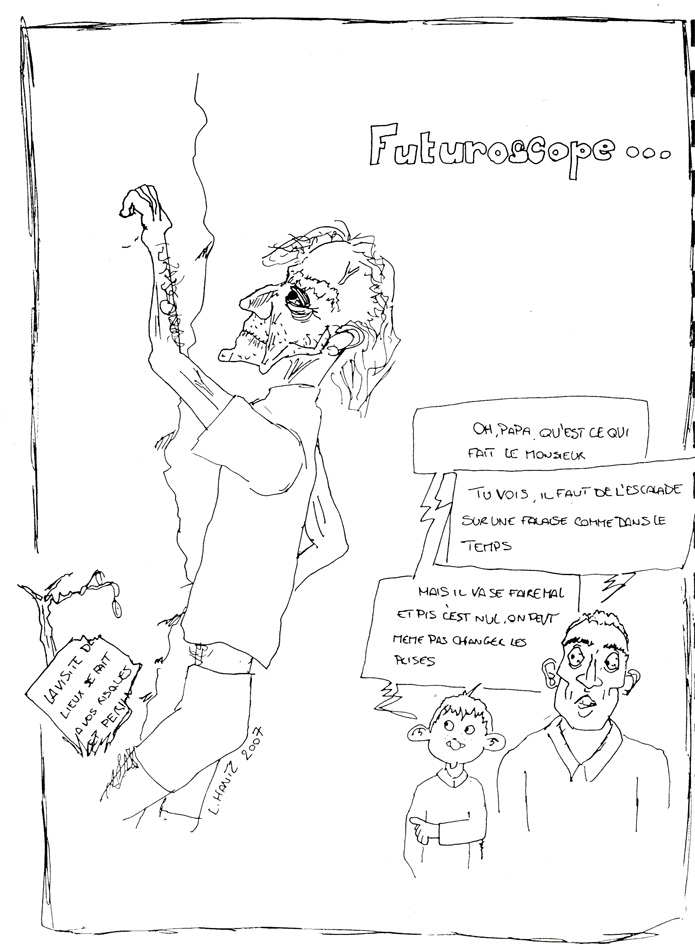 Futuroscope...
OH, PAPA, QU'EST CE QUI
FAIT LE MONSIEUR
TU VOIS, IL FAUT DE L'ESCALADE
SUR UNE FALAISE COMME DANS LE
TEMPS
MAIS IL VA SE FAIRE MAL
ET PIS C'EST NUL, ON PEUT
MEME PAS CHANGER LES
PRISES
LA VISITE DE
LIEUX SE FAIT
A VOS RISQUES
ET PERILS
L. HANTZ 2007